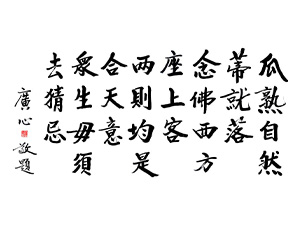 瓜熟自然
蒂就落
念佛西方
座上客
兩則均是
合天意
眾生毋須
去猜忌
廣心敬題